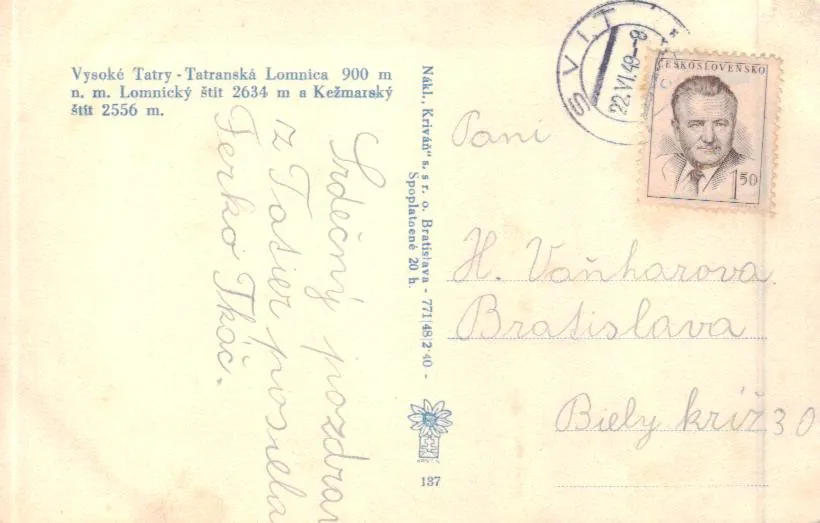 Vysoké Tatry - Tatranská Lomnica 900 m
n. m. Lomnický štít 2634 m a Kežmarský
štít 2556 m.
Srdečný pozdrav
z Tatier posiela
Ferko Tkáč.
Nákl. „Kriváň" s. s r. o. Bratislava - 771|48|2·40 -
Spoplatnené 20 h.
137
SVIT
22.VI.49-8
ČESKOSLOVENSKO
1 50
Pani
H. Vaňharova
Bratislava
Biely kríž 30